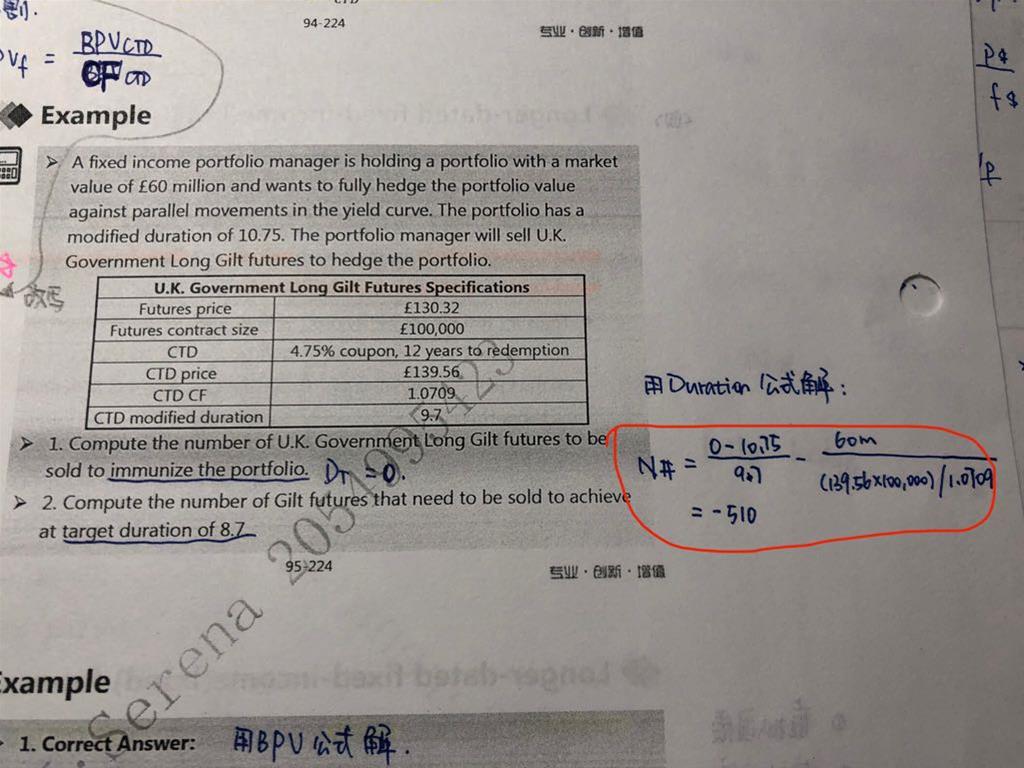 94-224
专业·创新·增值
BPV CTD
= CF CTD
Example
➤ A fixed income portfolio manager is holding a portfolio with a market
value of £60 million and wants to fully hedge the portfolio value
against parallel movements in the yield curve. The portfolio has a
modified duration of 10.75. The portfolio manager will sell U.K.
Government Long Gilt futures to hedge the portfolio.
改写
U.K. Government Long Gilt Futures Specifications
Futures price £130.32
Futures contract size £100,000
CTD 4.75% coupon, 12 years to redemption
CTD price £139.56
CTD CF 1.0709
CTD modified duration 9.7
➤ 1. Compute the number of U.K. Government Long Gilt futures to be
sold to immunize the portfolio. DT = 0.
➤ 2. Compute the number of Gilt futures that need to be sold to achieve
at target duration of 8.7
用Duration公式解:
N# = 0-10.75 / 9.7 - 60m / (139.56×100,000)/1.0709
= -510
95-224
专业·创新·增值
Serena 2051995423
Example
1. Correct Answer: 用BPV公式解.